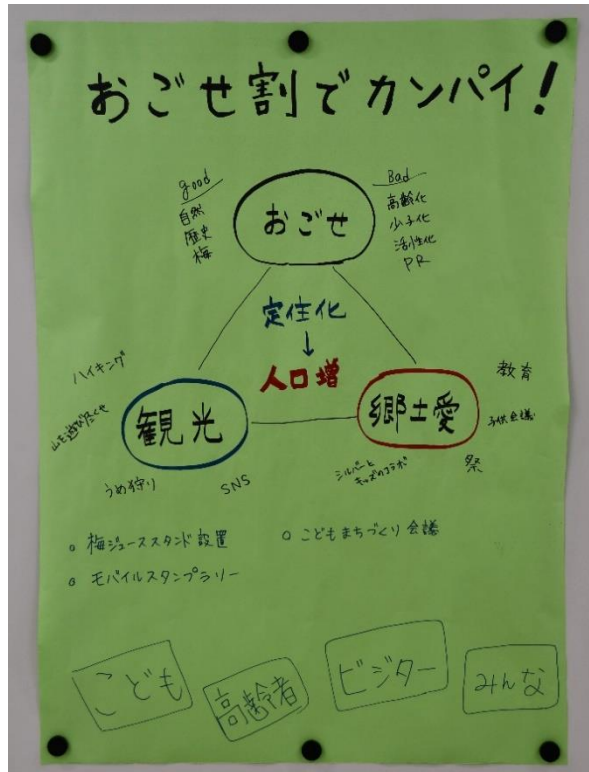 おごせ割でカンパイ!
good
自然
歴史
梅
おごせ
Bad
高齢化
少子化
活性化
PR
定住化
↓
人口増
ハイキング
山を遊びたくせ
観光
うめ狩り
SNS
郷土愛
教育
子供会議
祭
シルバーと
キッズのコラボ
○ 梅ジューススタンド設置
○ モバイルスタンプラリー
○ こどもまちづくり会議
こども
高齢者
ビジター
みんな